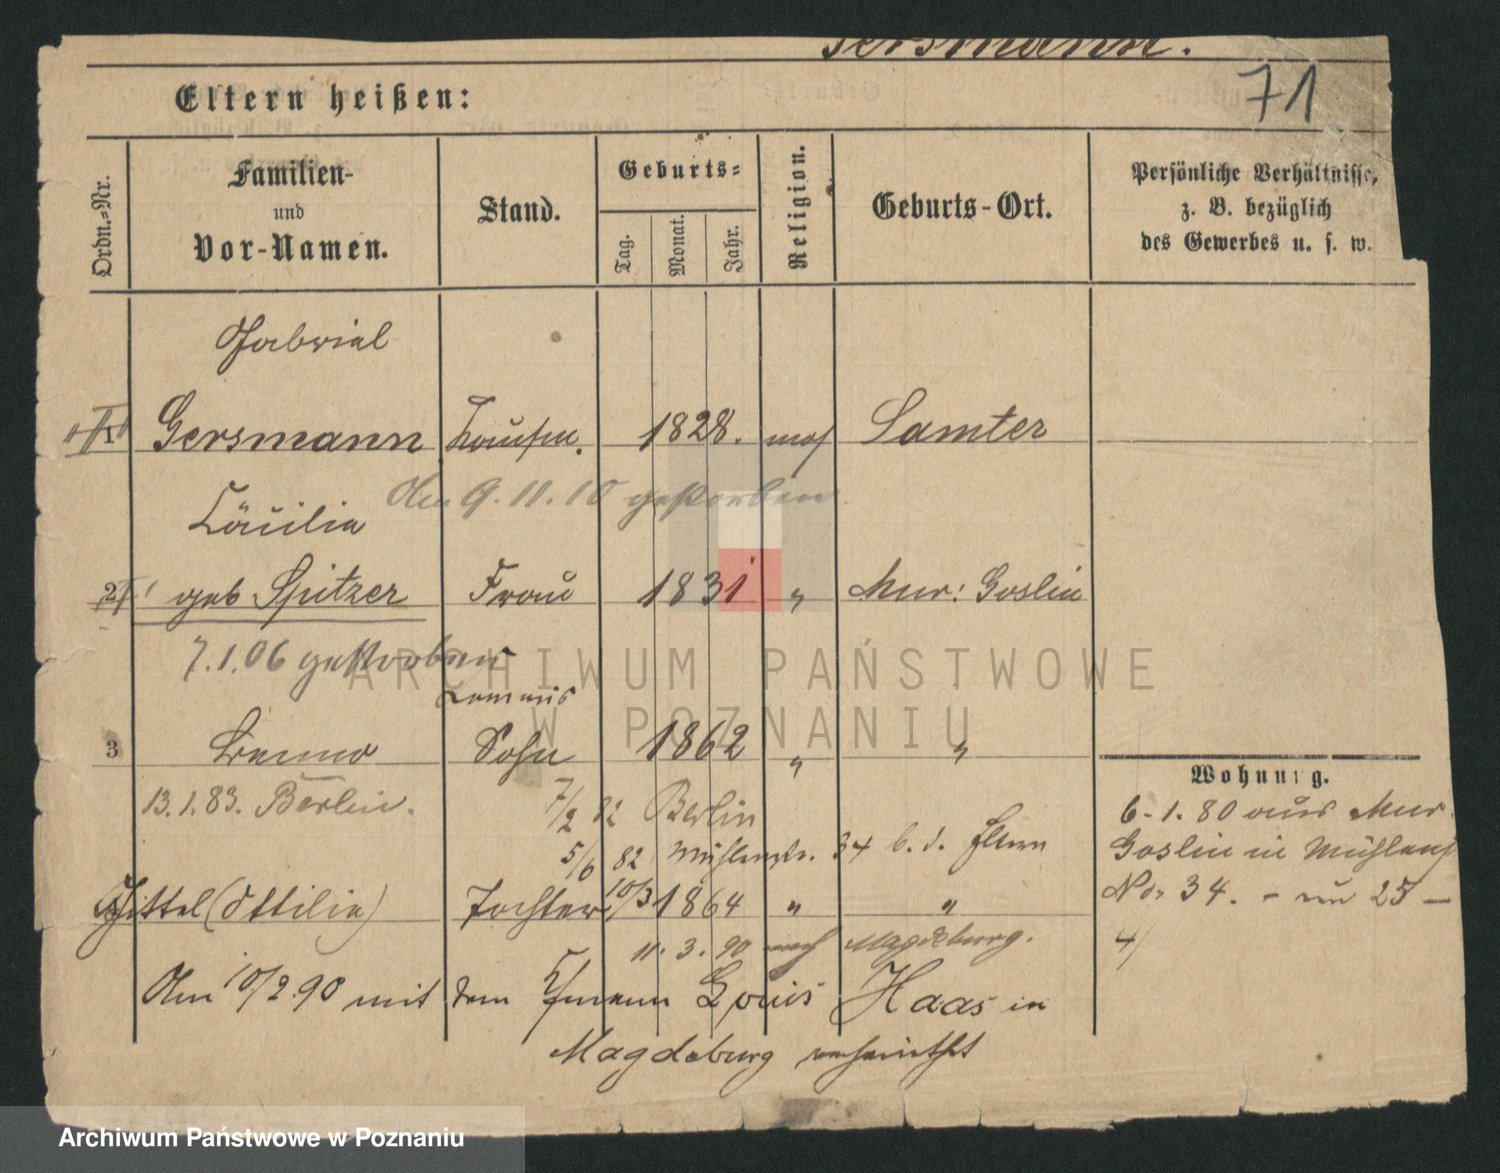 Gersmann.
71
Eltern heißen:
Ordn.-Nr.
Familien-
und
Vor-Namen.
Stand.
Geburts-
Tag.
Monat.
Jahr.
Religion.
Geburts-Ort.
Persönliche Verhältnisse,
z. B. bezüglich
des Gewerbes u. s. w.
Gabriel
1 Gersmann Kaufm. 1828. mos Samter
Am 9.11.10 gestorben.
Cäcilie
2 geb Spitzer Frau 1831 " Mur: Goslin
7.1.06 gestorben
Commis
3 Benno Sohn 1862 " "
Wohnung.
13.1.83. Berlin.
7/2 82 Berlin
6-1.80 aus Mur.
5/6 82 Mühlenstr. 34 b. d. Eltern
Goslin in Mühlens
No. 34. - 25 -
4/
Gittel (Ottilie) Tochter 10/3 1864 " "
11.3.90 nach Magdeburg.
Am 10/2.90 mit dem Kfmann Louis Haas in
Magdeburg verheirathet
ARCHIWUM PAŃSTWOWE
W POZNANIU
Archiwum Państwowe w Poznaniu